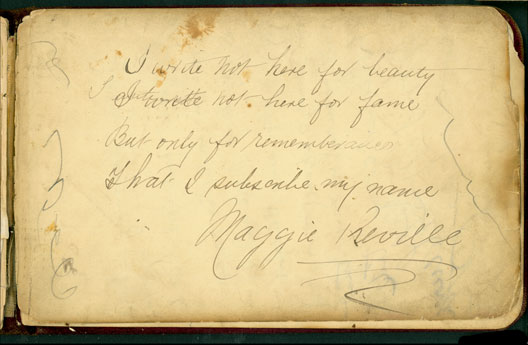 I write not here for beauty
I write not here for fame
But only for rememberance
That I subscribe my name
Maggie Reville